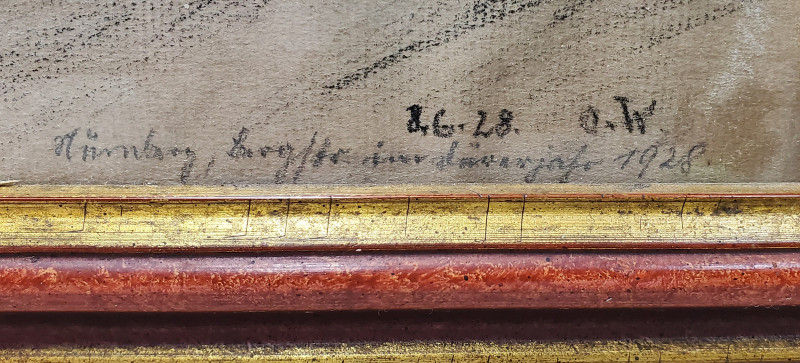 8.6.28. O.W.
Nürnberg, Bergstr im Dürerjahr 1928.